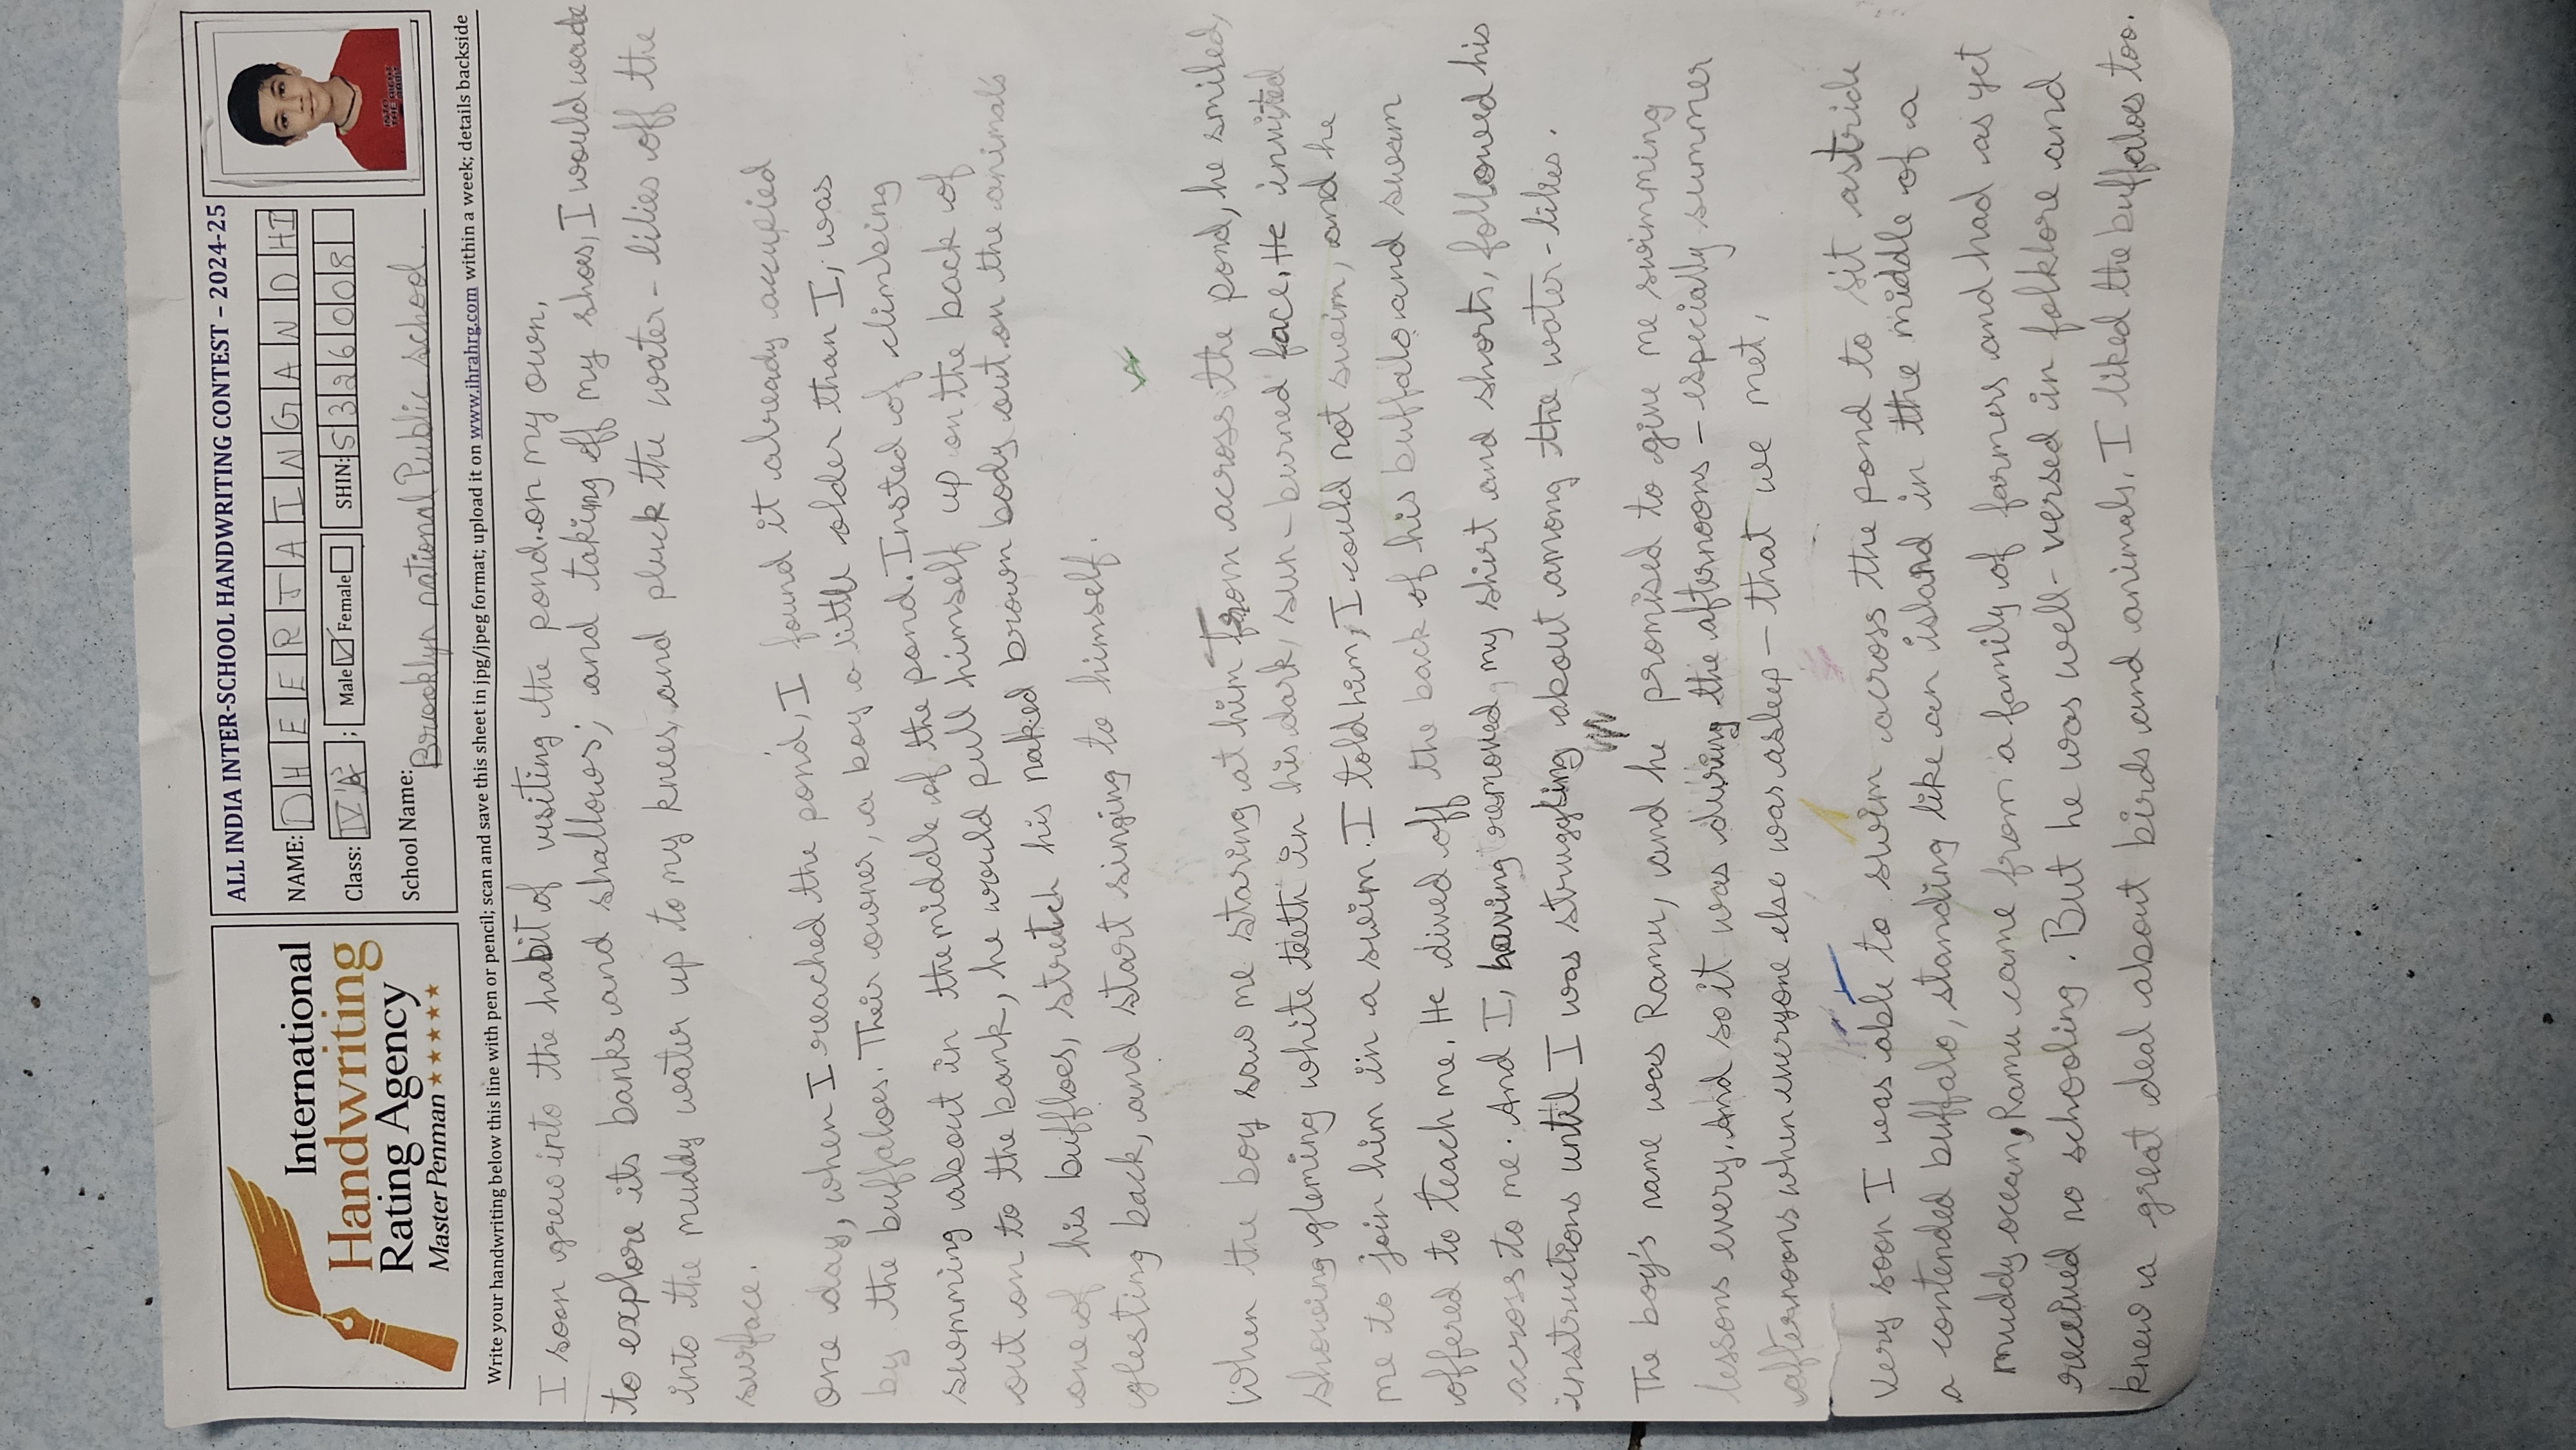 International
Handwriting
Rating Agency
Master Penman ★★★★★★
ALL INDIA INTER-SCHOOL HANDWRITING CONTEST – 2024-25
NAME: DHEERTAINGANDHI
Class: IV 'A'; Male ☑ Female ☐ SHIN: S326008
School Name: Brooklyn national Public school
Write your handwriting below this line with pen or pencil; scan and save this sheet in jpg/jpeg format; upload it on www.ihrahrg.com within a week; details backside
I soon grew into the habit of visiting the pond on my own,
to explore its banks and shallows; and taking off my shoes, I would wade
into the muddy water up to my knees and pluck the water-lilies off the
surface.
One day, when I reached the pond, I found it already occupied
by the buffaloes. Their owner, a boy a little older than I, was
swmming about in the middle of the pond. Insted of climbing
out on to the bank, he would pull himself up on the back of
one of his buffloes, stretch his naked brown body out on the animals
glesting back, and start singing to himself.
When the boy saw me staring at him from across the pond, he smiled,
showing gleming white teeth in his dark, sun-burned face. He invited
me to join him in a swim. I told him, I could not swim, and he
offered to teach me. He dived off the back of his buffalo and swam
across to me. And I, having removed my shirt and shorts, followed his
instructions until I was struggling about among the water-lilies.
The boy's name was Ramu, and he promised to give me swimming
lessons every. And so it was during the afternoons – especially summer
afternoons when everyone else was asleep – that we met,
Very soon I was able to swim across the pond to sit astride
a contended buffalo, standing like an island in the middle of a
muddy ocean, Ramu came from a family of farmers and had as yet
received no schooling. But he was well-versed in folklore and
knew a great deal about birds and animals. I liked the buffaloes too.